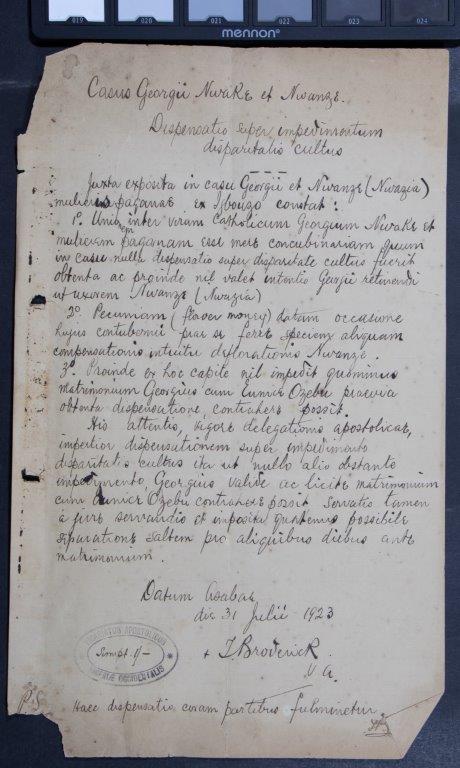 019 020 021 022 023 024
mennon
Casus Georgii Nwake et Nwanze.
Dispensatio super impedimentum
disparitatis cultus
Juxta exposita in casu Georgii et Nwanze (Nwazia)
mulieris paganae ex Igbouzo constat:
1º. Unionem inter virum Catholicum Georgium Nwake et
mulierem paganam esse mere concubinariam quum
in casu nulla dispensatio super disparitate cultus fuerit
obtenta ac proinde nil valet intentio Georgii retinendi
ut uxorem Nwanze (Nwazia)
2º. Pecuniam (flower money) datam occasione
hujus contubernii prae se ferre speciem aliquam
compensationis intuitu deflorationis Nwanze.
3º. Proinde ex hoc capite nil impedit quominus
matrimonium Georgius cum Eunice Ozebu praevia
obtenta dispensatione, contrahere possit.
His attentis, vigore delegationis apostolicae,
impertior dispensationem super impedimento
disparitatis cultus ita ut nullo alio obstante
impedimento, Georgius valide ac licite matrimonium
cum Eunice Ozebu contrahere possit servatis tamen
a jure servandis et imposita quatenus possibile
separatione saltem pro aliquibus diebus ante
matrimonium.
Datum Asabae
die 31 Julii 1923
+ T. Broderick
V A.
VICARIATUS APOSTOLICUS
NIGERIAE OCCIDENTALIS
P.S
Haec dispensatio coram partibus fulminetur.